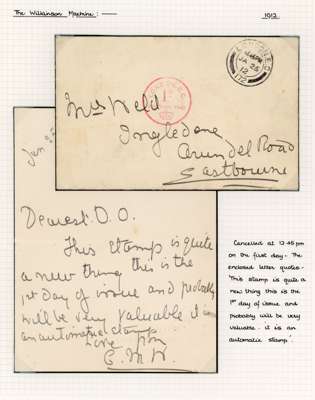 The Wilkinson Machine: —
1912
12 45 PM
JA 25
12
Mrs Weld
Ingledene
Arundel Road
Eastbourne
Jan 25
Dearest. O. O.
This stamp is quite
a new thing, this is the
1st day of issue and probably
will be very valuable it is
an automatic stamp
Love from
E. M. W.
Cancelled at 12·45 pm
on the first day. The
enclosed letter quotes-
'This stamp is quite a
new thing this is the
1st day of issue and
probably will be very
valuable - it is an
automatic stamp'